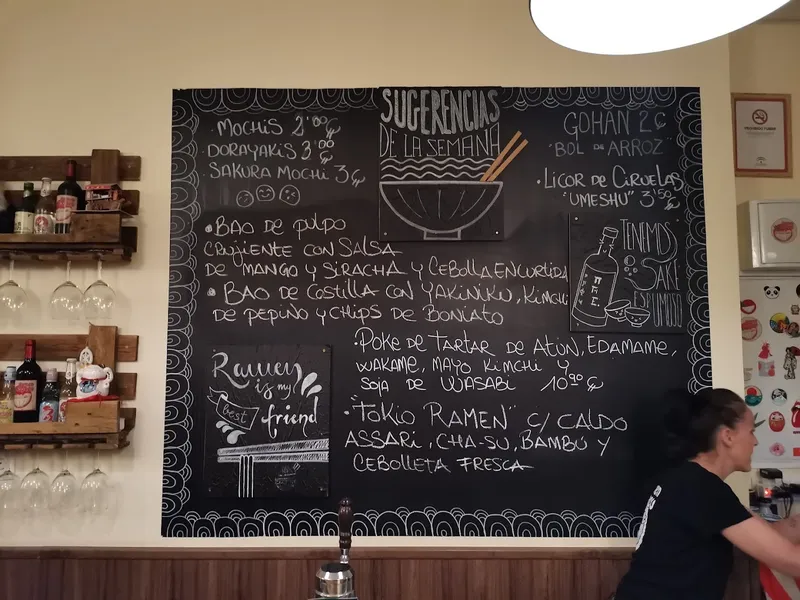 SUGERENCIAS
DE LA SEMANA
· MOCHIS 2'00€
DORAYAKIS 3'00€
· SAKURA MOCHI 3€
GOHAN 2€
"BOL DE ARROZ"
· LICOR DE CIRUELAS
"UMESHU" 3'50€
· BAO DE PULPO
CRUJIENTE CON SALSA
DE MANGO Y SIRACHA Y CEBOLLA ENCURTIDA
· BAO DE COSTILLA CON YAKINIKU, KIMCHI
DE PEPINO Y CHIPS DE BONIATO
TENEMOS
SAKE
ESPUMOSO
· POKE DE TARTAR DE ATÚN, EDAMAME,
WAKAME, MAYO KIMCHI Y
SOJA DE WASABI 10'90€
Ramen
is my
best
friend
· "TOKIO RAMEN" C/ CALDO
ASSARI, CHA-SU, BAMBÚ Y
CEBOLLETA FRESCA